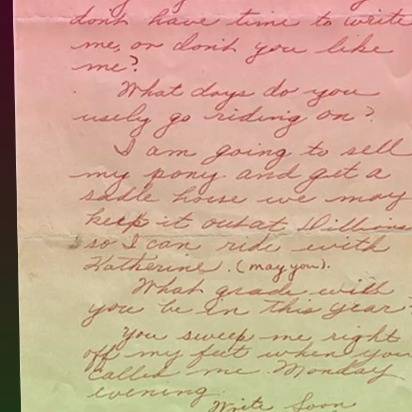 don't have time to write
me, or don't you like
me?
What days do you
usely go riding on?
I am going to sell
my pony and get a
sadle horse we may
keep it out at Dillions
so I can ride with
Katherine. (may you).
What grade with
you be in this year?
You sweep me right
off my feet when you
called me Monday
evening.
Write Soon